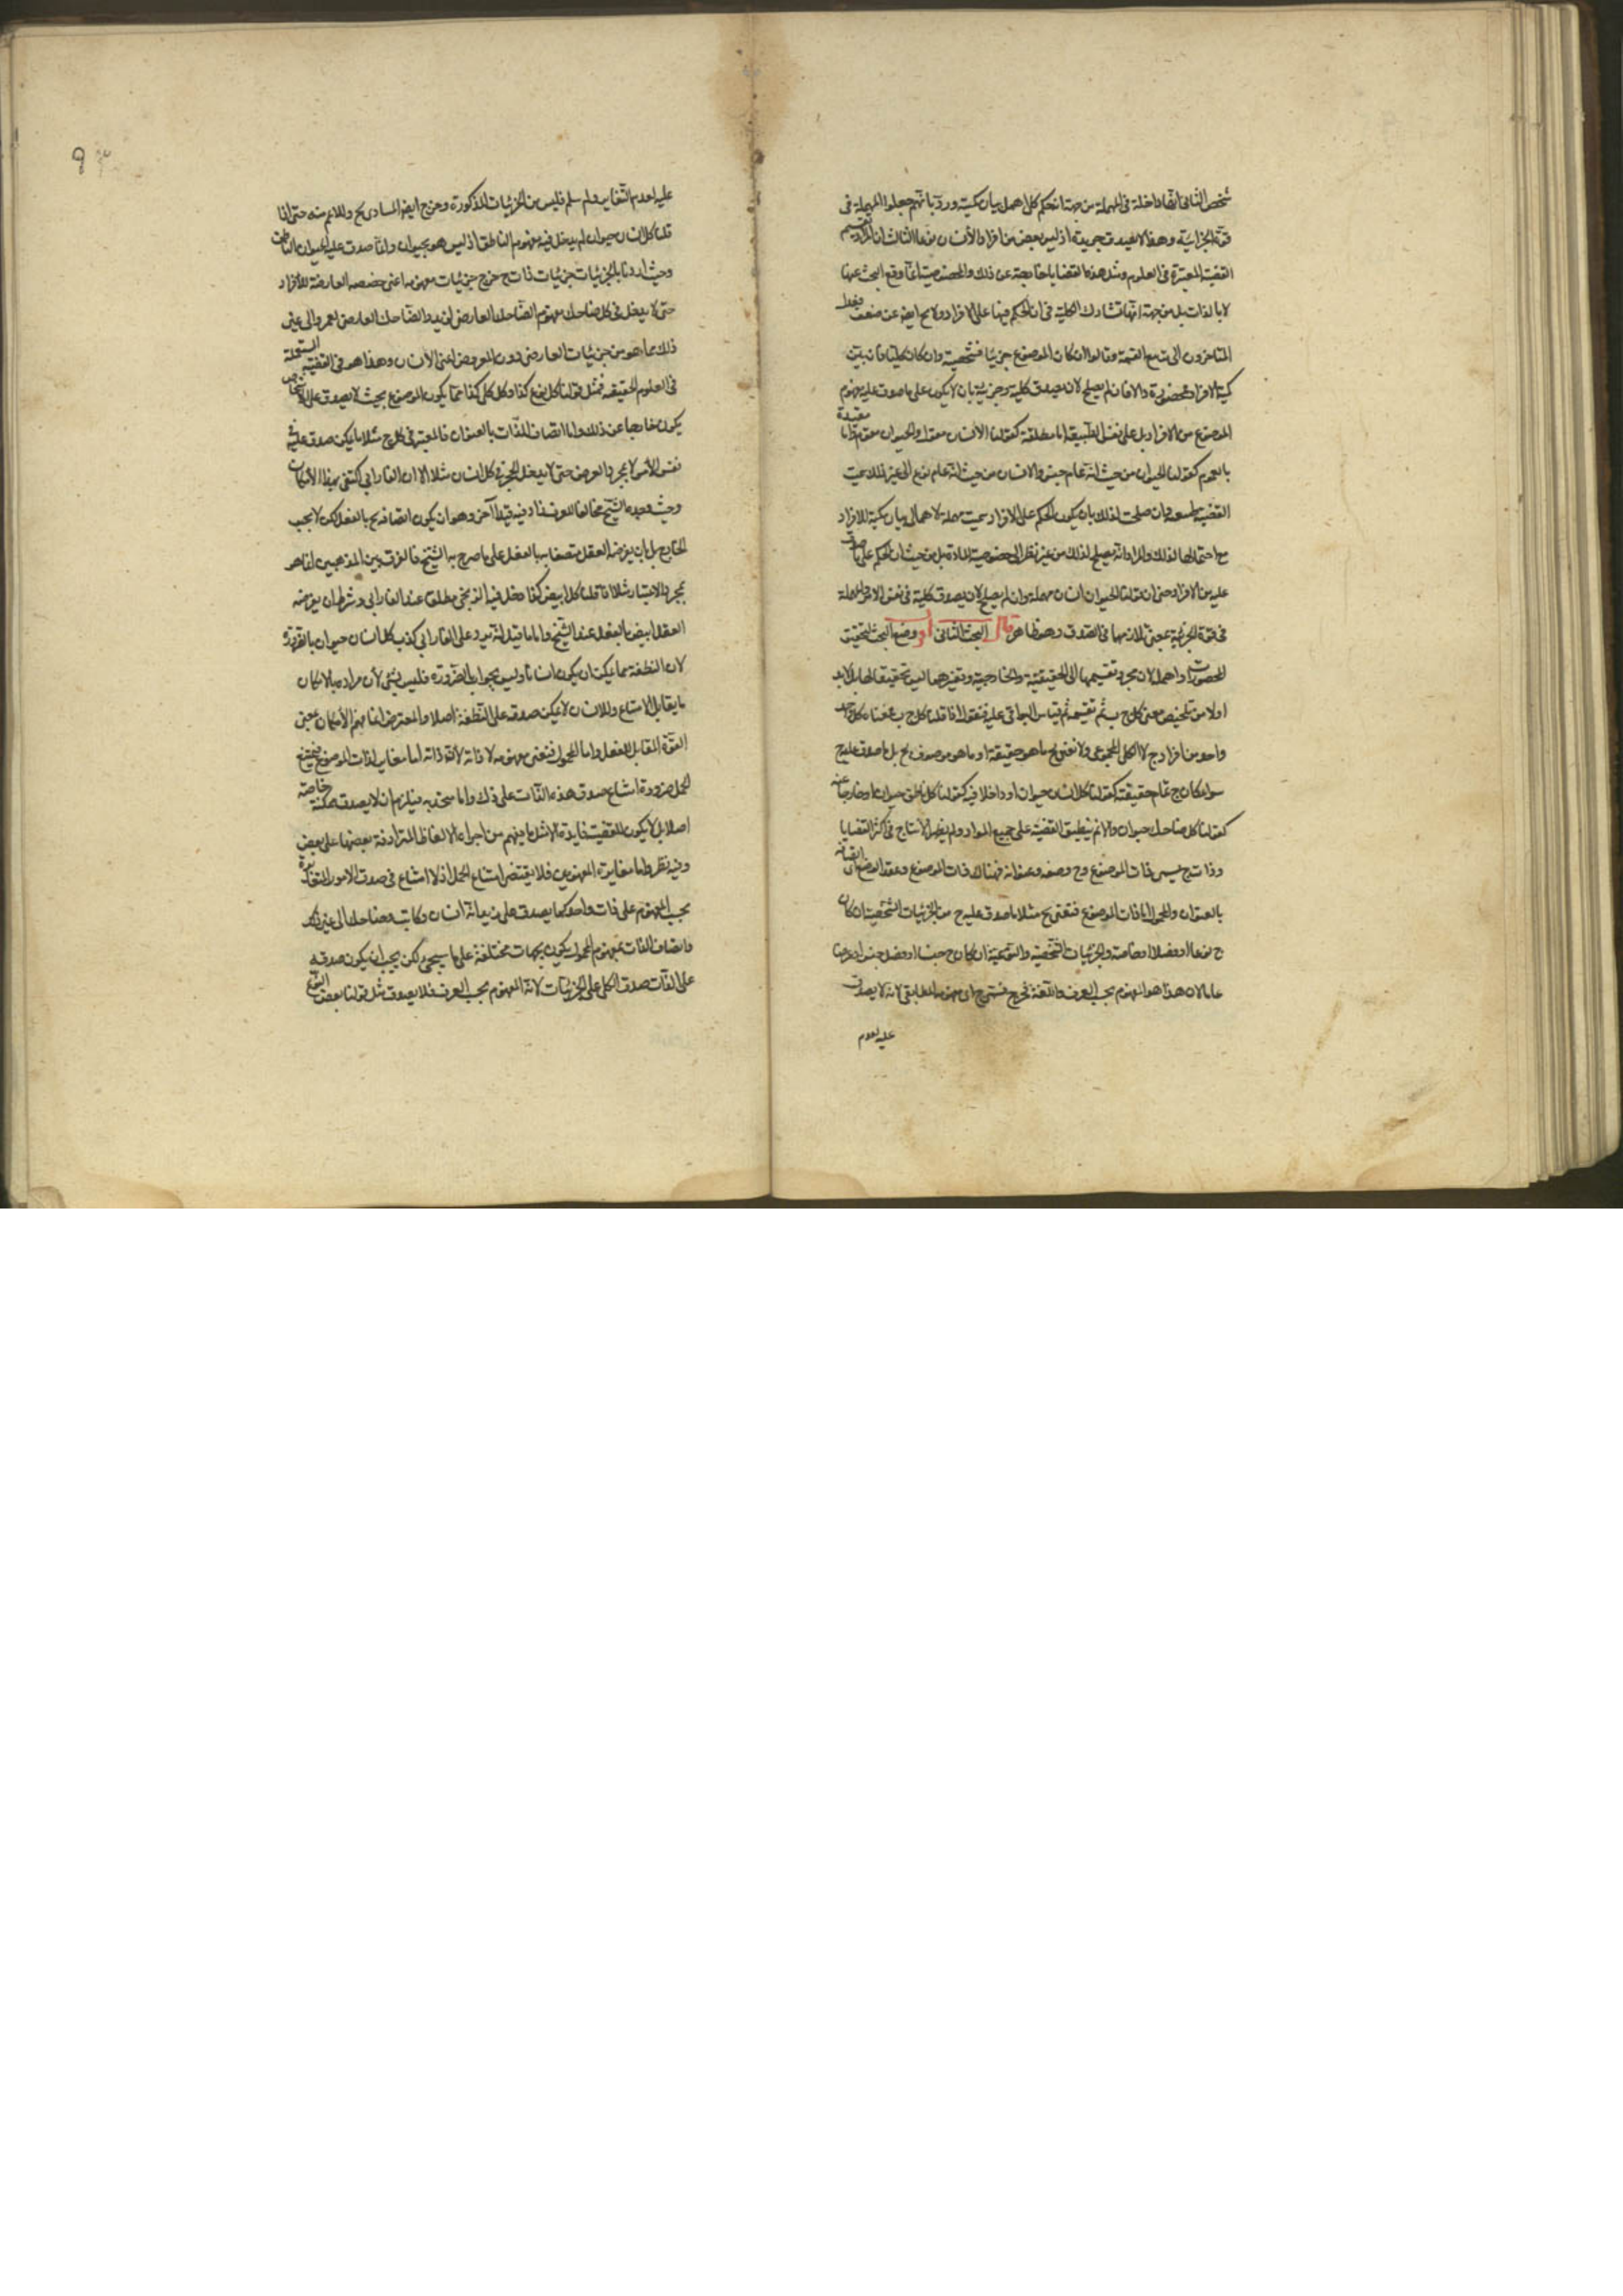 شخص الثاني انها داخلة في المهملة من جهة ان الحكم كلي اهمل بيان كميته ورد بانهم جعلوا المهملة في
قوة الجزئية وهذا لا يصدق جزئيته اذ ليس بعض من افراد الانسان نوعا الثالث ان المراد تقسيم
القضية المعتبرة في العلوم ومثل هذه القضايا خارجة عن ذلك والمخصوصة انما وقع البحث عنها
لا بالذات بل من جهة انها تشارك الكلية في ان الحكم فيها على الافراد ولا يخ ايضه عن ضعف فعدل
المتاخرون الى تربيع القسمة وقالوا ان كان الموضوع جزئيا فشخصية وان كان كليا فان بين
كمية الافراد فمحصورة والا فان لم يصلح لان يصدق كلية وجزئية بان لا يكون على ما صدق عليه مفهوم
الموضوع من الافراد بل على نفس الطبيعة اما مطلقة كقولنا الانسان مقول والحيوان مقوم واما مقيدة
بالعموم كقولنا الحيوان من حيث انه عام جنس والانسان من حيث انه عام نوع الى غير ذلك سميت
القضية طبيعية وان صلحت لذلك بان يكون الحكم على الافراد سميت مهملة لاهمال بيان كمية الافراد
مع احتمالها لذلك والمراد انه يصلح لذلك من غير نظر الى خصوصية المادة بل من حيث ان الحكم على ما صدق
عليه من الافراد حتى ان قولنا الحيوان انسان مهملة وان لم يصلح لان يصدق كلية في نفس الامر والمهملة
في قوة الجزئية بمعنى تلازمهما في الصدق وهو ظاهر قال البحث الثاني اقول وضع البحث لتحقيق
المحصورات واهمالا لان مجرد تقسيمها الى الحقيقية والخارجية وتفسيرهما ليس تحقيقا لها بل لا بد
اولا من تلخيص معنى كل ج ب ثم تقسيمه ثم قياس البواقي عليه فنقول اذا قلنا كل ج ب فمعناه كل واحد
واحد من افراد ج لا الكل المجموعي ولا نعني بج ما هو حقيقته او ما هو موصوف بج بل ما صدق عليه ج
سواء كان ج تمام حقيقته كقولنا كل انسان حيوان او داخلا فيه كقولنا كل ناطق حيوان او خارجا عنه
كقولنا كل ضاحك حيوان والا لم ينطبق القضية على جميع المواد ولم يحصل الانتاج في اكثر القضايا
وذات ج يسمى ذات الموضوع و ج وصفه وعنوانه فهناك ذات الموضوع وعقد الوضع اي اتصافه
بالعنوان والمحمول اما ذات الموضوع فنعني بج مثلا ما صدق عليه ج من الجزئيات الشخصية ان كان
ج نوعا او فصلا او خاصة والجزئيات الشخصية والنوعية ان كان ج جنسا او فصل جنس او عرضا
عاما لان هذا هو المفهوم بحسب العرف واللغة فخرج مسمى ج اي مفهومه المطابقي لانه لا يصدق
عليه لعدم
عليه لعدم التغاير ولم سلم فليس من الجزئيات المذكورة وخرج ايضه المساوي لج واللازم منه حتى اذا
قلنا كل انسان حيوان لم يدخل فيه مفهوم الناطق اذ ليس هو بحيوان وانما صدق عليه الحيوان الناطق
وحيث اردنا بالجزئيات جزئيات ذات ج خرج جزئيات مفهومه اعني حصصه العارضة للافراد
حتى لا يدخل في كل ضاحك مفهوم الضاحك العارض لزيد والضاحك العارض لعمرو الى غير
ذلك مما هو من جزئيات العارض دون المعروض اعني الانسان وهذا هو في القضية المستعملة
في العلوم الحقيقية فمثل قولنا كل نوع كذا وكل كلي كذا مما يكون الموضوع بحيث لا يصدق على الاشخاص
يكون خارجا عن ذلك واما اتصاف الذات بالعنوان فالمعتبر في كل ج مثلا ما يمكن صدق عليه في
نفس الامر لا بمجرد الفرض حتى لا يدخل الحجر في كل انسان مثلا الا ان الفارابي اكتفى بهذا الامكان
وحيث وجده الشيخ مخالفا للعرف زاد فيه قيدا آخر وهو ان يكون اتصافه بج بالفعل لكن لا بحسب
الخارج بل بان يفرضه العقل متصفا به بالفعل على ما صرح به الشيخ فالفرق بين المذهبين انما هو
بمجرد الاعتبار مثلا اذا قلنا كل ابيض كذا دخل فيه الزنجي مطلقا عند الفارابي وشرط ان يفرضه
العقل ابيض بالفعل عند الشيخ واما ما قيل انه يرد على الفارابي كذب كل انسان حيوان بالضرورة
لان النطفة مما يمكن ان يكون انسانا وليس بحيوان بالضرورة فليس بشئ لان مراده بالامكان
ما يقابل الامتناع والانسان لا يمكن صدقه على النطفة اصلا والمعترض انما فهم الامكان بمعنى
القوة المقابل للفعل واما المحمول فنعني مفهومه لا ذاته لان ذاته اما مغاير لذات الموضوع فيمتنع
الحمل ضرورة امتناع صدق هذه الذات على ذلك واما متحد به فيلزم ان لا يصدق ممكنة خاصة
اصلا بل لا يكون للقضية فايدة الا مثل ما يفهم من اجراء الالفاظ المترادفة بعضها على بعض
وفيه نظر واما مغايرة المفهومين فلا يقتضي امتناع الحمل اذ لا امتناع في صدق الامور المتغايرة
بحسب المفهوم على ذات واحد كما يصدق على زيد انه انسان وكاتب وضاحك الى غير ذلك
واتصاف الذات بمفهوم المحمول يكون بجهات مختلفة على ما سيجئ لكن يجب ان يكون صدقه
على الذات صدق الكلي على الجزئيات لانه المفهوم بحسب العرف فلا يصدق مثل قولنا بعض النوع